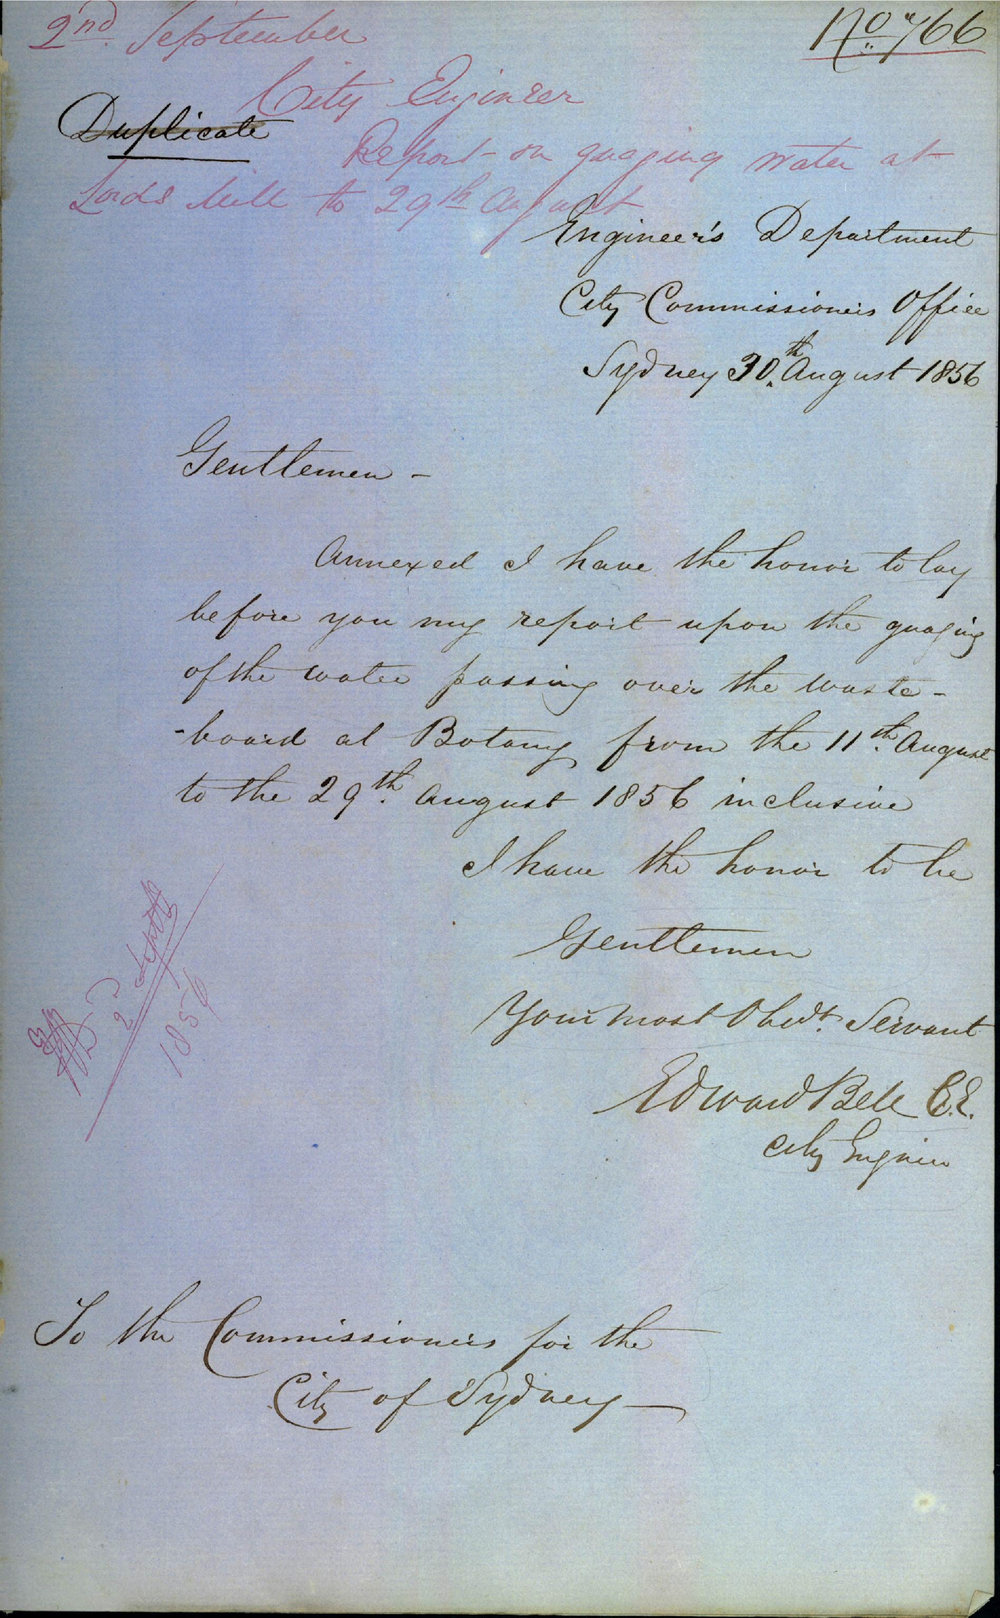 2nd September
No 766
City Engineer
Duplicate
Report on guaging water at
Lords Mill to 29th August
Engineer's Department
City Commissioners Office
Sydney 30th August 1856
Gentlemen -
Annexed I have the honor to lay
before you my report upon the guaging
of the water passing over the waste-
-board at Botany from the 11th August
to the 29th August 1856 inclusive
I have the honor to be
Gentlemen
Your most Obedt. Servant
Edward Bell C.E.
City Engineer
2 Septb
1856
To the Commissioners for the
City of Sydney -